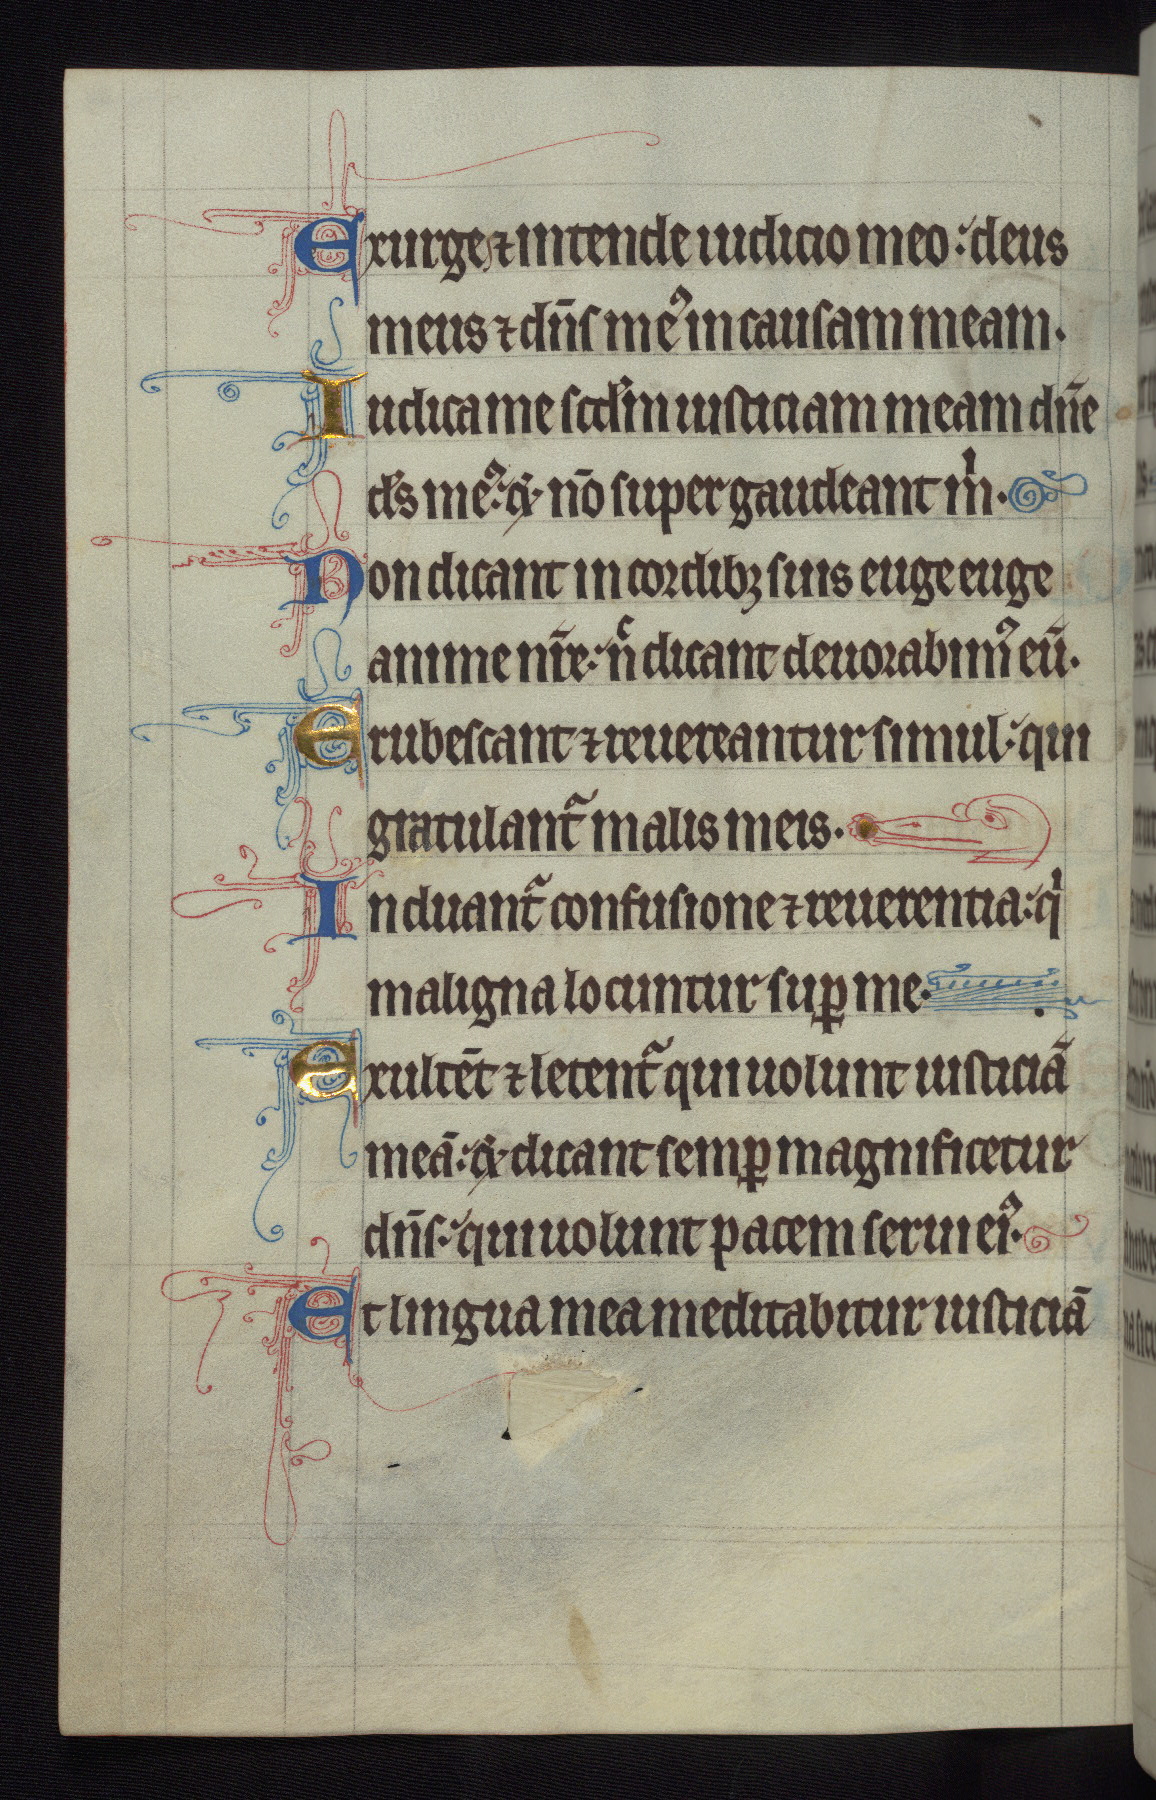 Exurge ⁊ intende iudicio meo: deus
meus ⁊ dn̄s meꝰ in causam meam.
Iudica me scd̄m iusticiam meam dn̄e
ds̄ meꝰ: ⁊ nō supergaudeant m̍.
Non dicant in cordibꝫ suis euge euge
anime nr̄e: nͨ dicant deuorabimꝰ eū.
Erubescant ⁊ reuereantur simul: qui
gratulantᷓ malis meis.
Induantᷓ confusione ⁊ reuerentia: qͥ
maligna locuntur suꝑ me.
Exultēt ⁊ letentᷓ qui uolunt iusticiā
meā: ⁊ dicant semꝑ magnificetur
dn̄s: qui uolunt pacem serui eiꝰ.
Et lingua mea meditabitur iusticiā